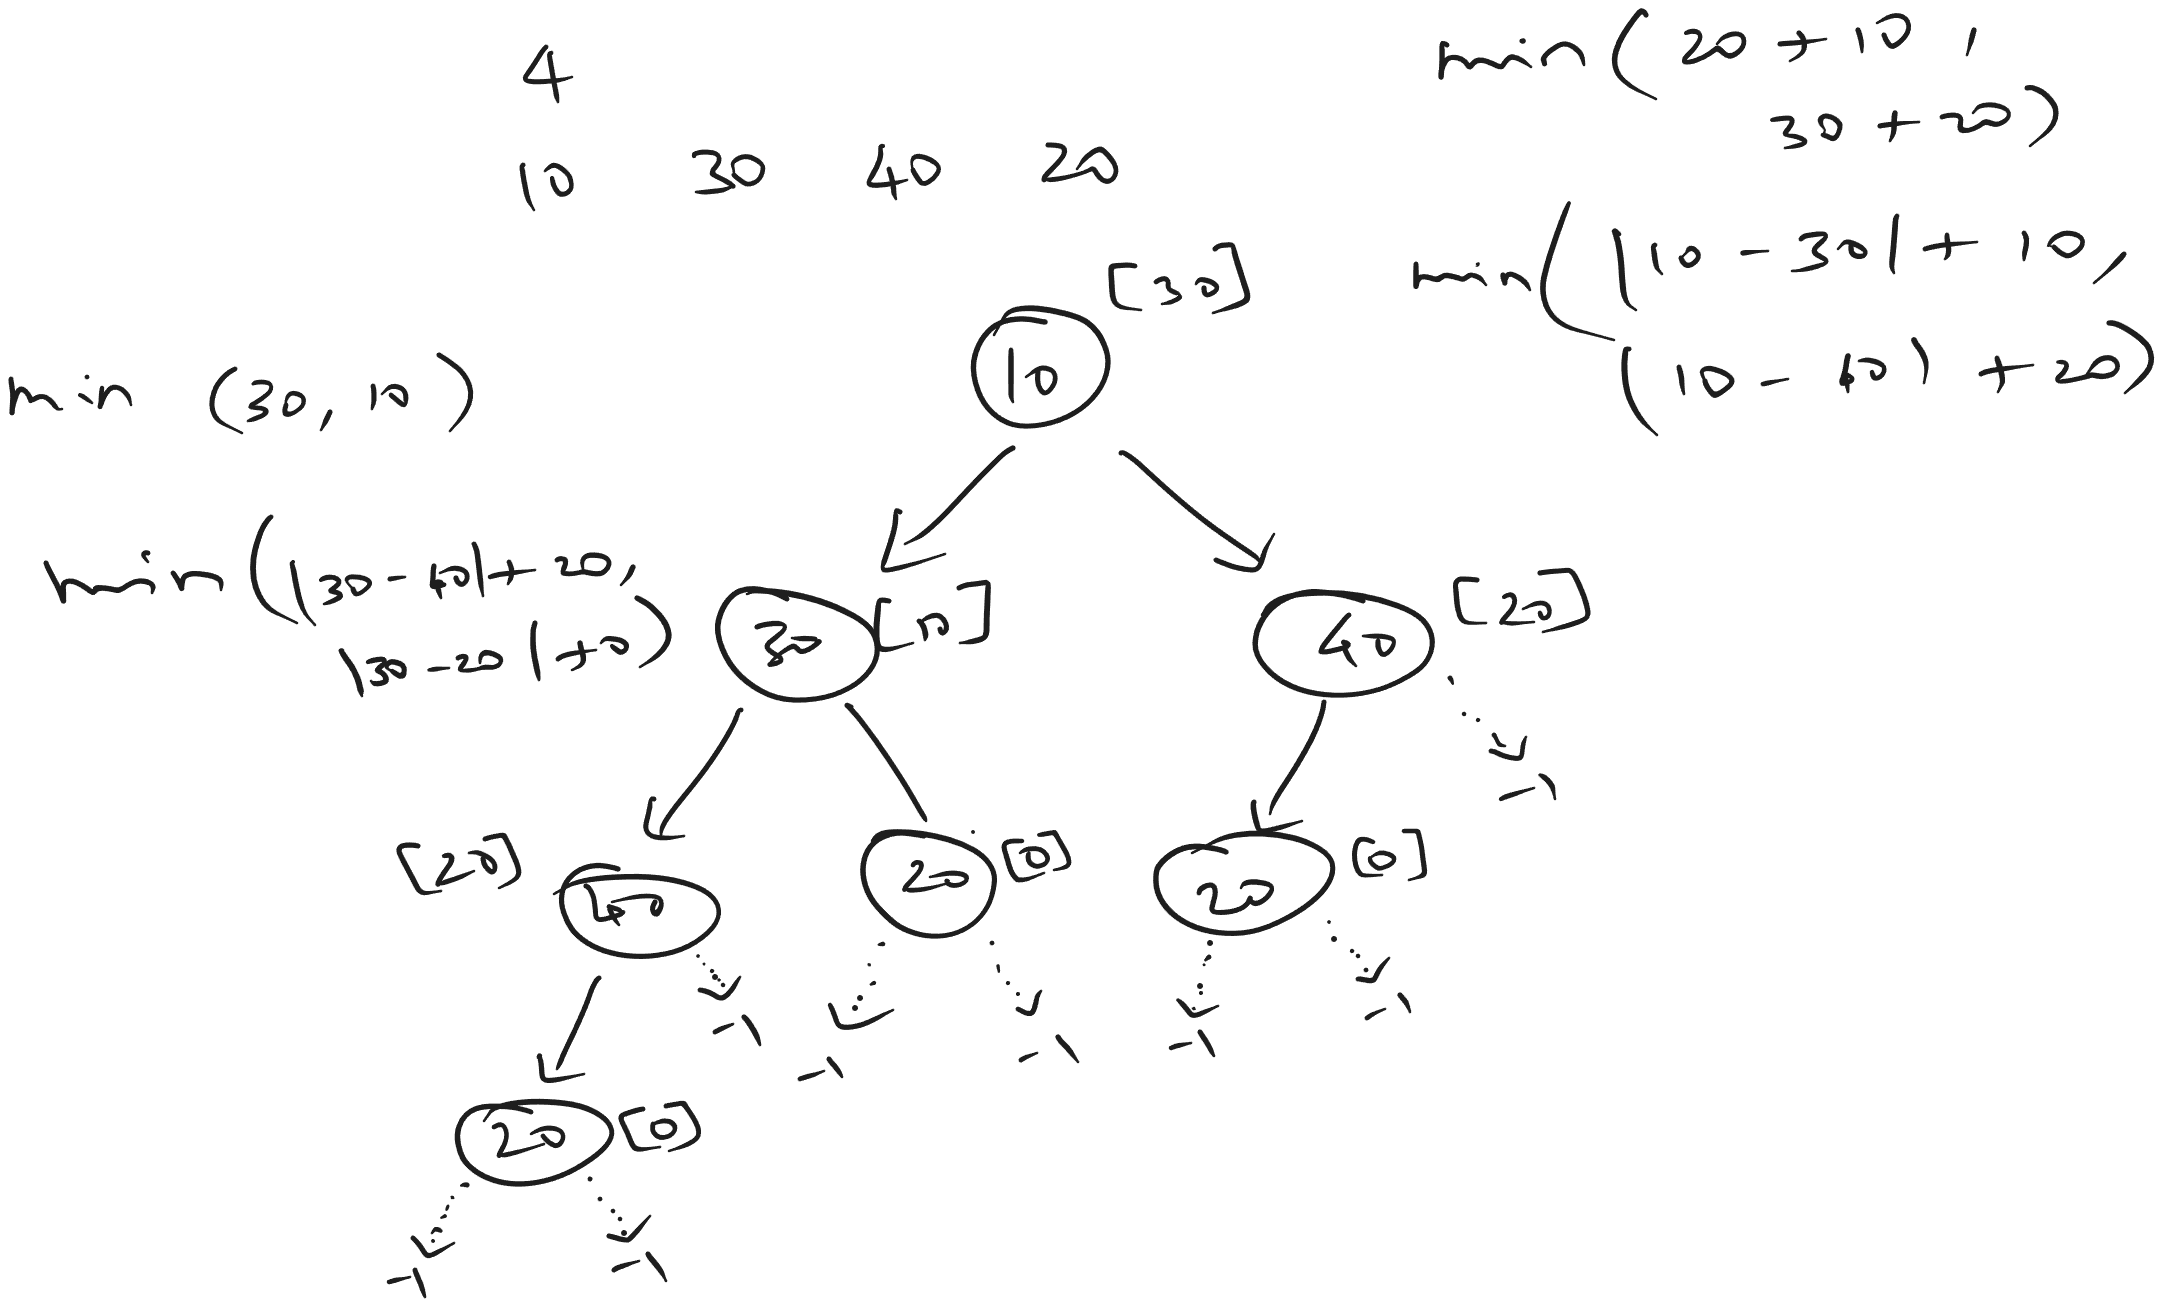 4
10 30 40 20
min (20 + 10 ,
30 + 20)
min (|10 - 30| + 10,
(10 - 40) + 20)
[30]
10
min (30, 10)
min (|30 - 40| + 20,
|30 - 20| + 0)
30 [10]
40 [20]
-1
[20] 40
20 [0]
20 [0]
-1
-1
-1
-1
-1
20 [0]
-1
-1